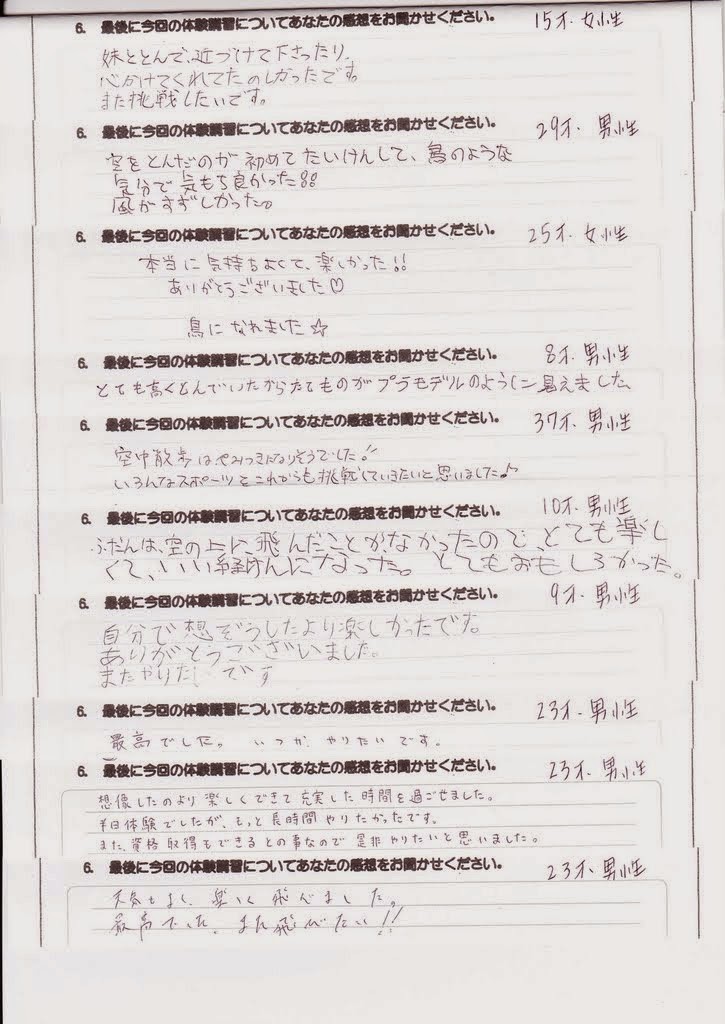 6. 最後に今回の体験講習についてあなたの感想をお聞かせください。 15才.女性
妹ととんで、近づけて下さったり、
心がけてくれてたのしかったです。
また挑戦したいです。
6. 最後に今回の体験講習についてあなたの感想をお聞かせください。 29才.男性
空をとんだのが初めてたいけんして、鳥のような
気分で気もち良かった!!
風がすずしかった。
6. 最後に今回の体験講習についてあなたの感想をお聞かせください。 25才.女性
本当に気持ちよくて、楽しかった!!
ありがとうございました♡
鳥になれました☆
6. 最後に今回の体験講習についてあなたの感想をお聞かせください。 8才.男性
とても高くとんでいたからたてものがプラモデルのように見えました。
6. 最後に今回の体験講習についてあなたの感想をお聞かせください。 37才.男性
空中散歩はやみつきになりそうでした♪
いろんなスポーツをこれからも挑戦していきたいと思いました♪
6. 最後に今回の体験講習についてあなたの感想をお聞かせください。 10才.男性
ふだんは、空の上に、飛んだことがなかったので、とても楽し
くて、いい経けんになった。とてもおもしろかった。
6. 最後に今回の体験講習についてあなたの感想をお聞かせください。 9才.男性
自分で想ぞうしたより楽しかったです。
ありがとうございました。
またやりたいです
6. 最後に今回の体験講習についてあなたの感想をお聞かせください。 23才.男性
最高でした。いつかやりたいです。
6. 最後に今回の体験講習についてあなたの感想をお聞かせください。 23才.男性
想像したのより楽しくできて充実した時間を過ごせました。
半日体験でしたが、もっと長時間やりたかったです。
また、資格取得もできるとの事なので是非やりたいと思いました。
6. 最後に今回の体験講習についてあなたの感想をお聞かせください。 23才.男性
天気もよく、楽しく飛べました。
最高でした。また飛びたい!!